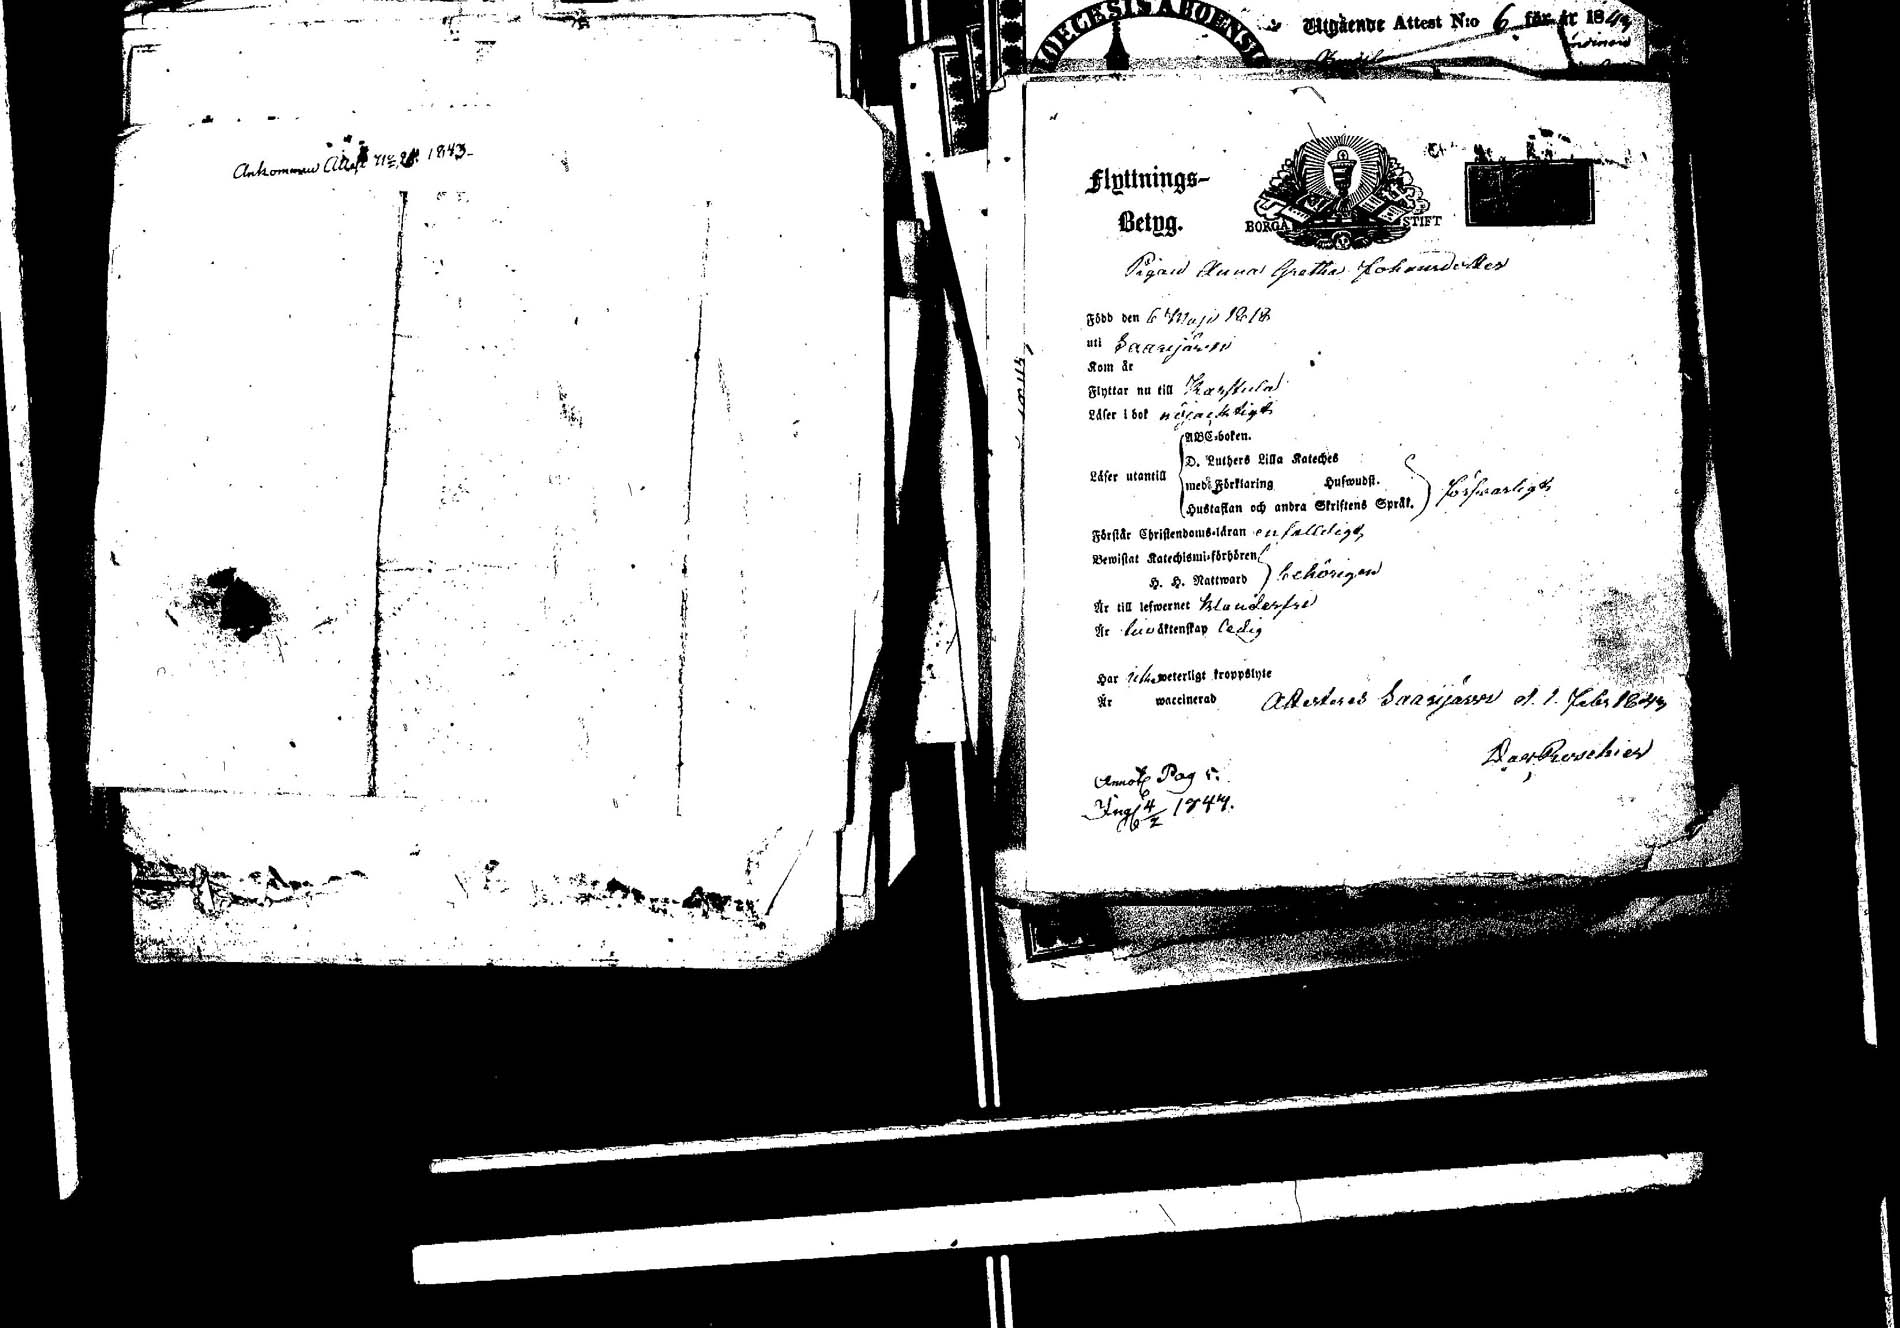 Ankommen Attest No 1843.
DIOECESIS ABOENSIS
Utgående Attest N:o 6 för år 184
Flyttnings-
Betyg.
BORGÅ STIFT
Pigan Anna Gretha Johansdotter
Född den 6 Maji 1818
uti Saarijärvi
Kom år
Flyttar nu till Karstula
Läser i bok nöjachtigt
ABC-boken.
D. Luthers Lilla Kateches
Läser utantill
med Förklaring Hufwudst.
Hustaflan och andra Skriftens Språk. försvarligt
Förstår Christendoms-läran enfalldigt
Bewistat Katechismi-förhören
H. H. Nattward behörigen
Är till lefwernet klanderfri
Är till äktenskap ledig
Har weterligt kroppslyte
Är waccinerad Attesteras Saarijärvi d. 1. Febr 1843
Roschier
Annot Pag 5.
Ing 4/2 1843.